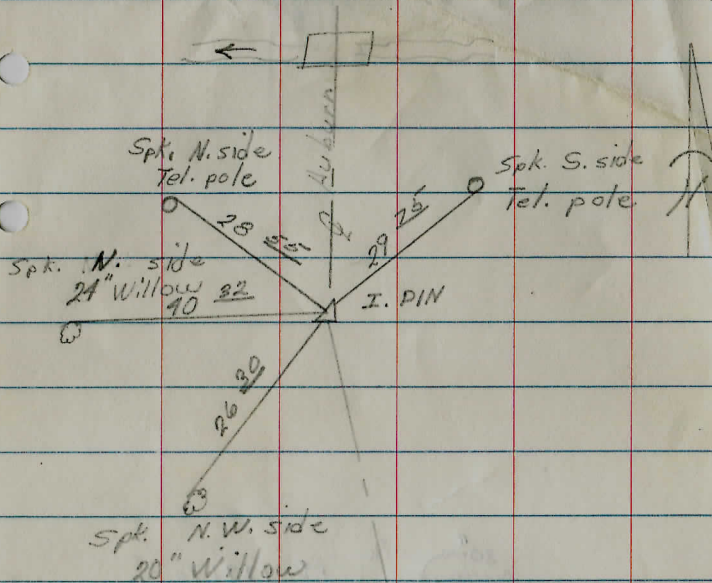 Auburn
Spk. N. side
Tel. pole
Spk. S. side
Tel. pole
N
28 55
29 25
Spk. N. side
24" Willow
40 32
I. PIN
26 30
Spk. N.W. side
20" Willow